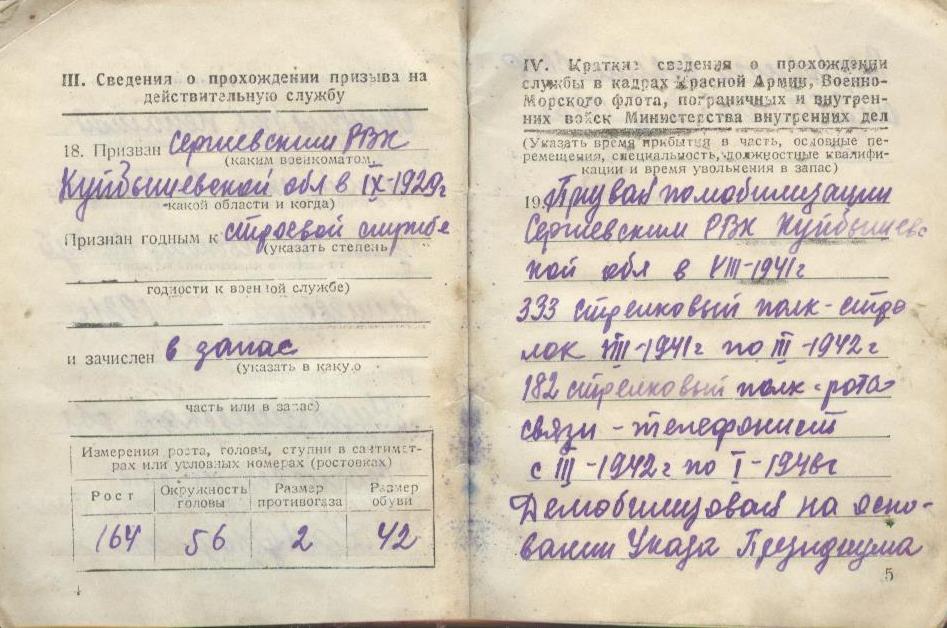 III. Сведения о прохождении призыва на
действительную службу
18. Призван Сергиевским РВК
(каким военкоматом,
Куйбышевской обл в IX-1929г
какой области и когда)
Признан годным к строевой службе
(указать степень
годности к военной службе)
и зачислен в запас
(указать в какую
часть или в запас)
Измерения роста, головы, ступни в сантимет-
рах или условных номерах (ростовках)
Рост Окружность головы Размер противогаза Размер обуви
164 56 2 42
4
IV. Краткие сведения о прохождении
службы в кадрах Красной Армии, Военно-
Морского флота, пограничных и внутрен-
них войск Министерства внутренних дел
(Указать время прибытия в часть, основные пе-
ремещения, специальность, должностные квалифи-
кации и время увольнения в запас)
19. Призван по мобилизации
Сергиевским РВК Куйбышевс
кой обл в VIII-1941г
333 стрелковый полк - стре
лок VIII-1941г по III-1942г
182 стрелковый полк - рота
связи - телефонист
с III-1942г по I-1946г
Демобилизован на осно-
вании Указа Президиума
5